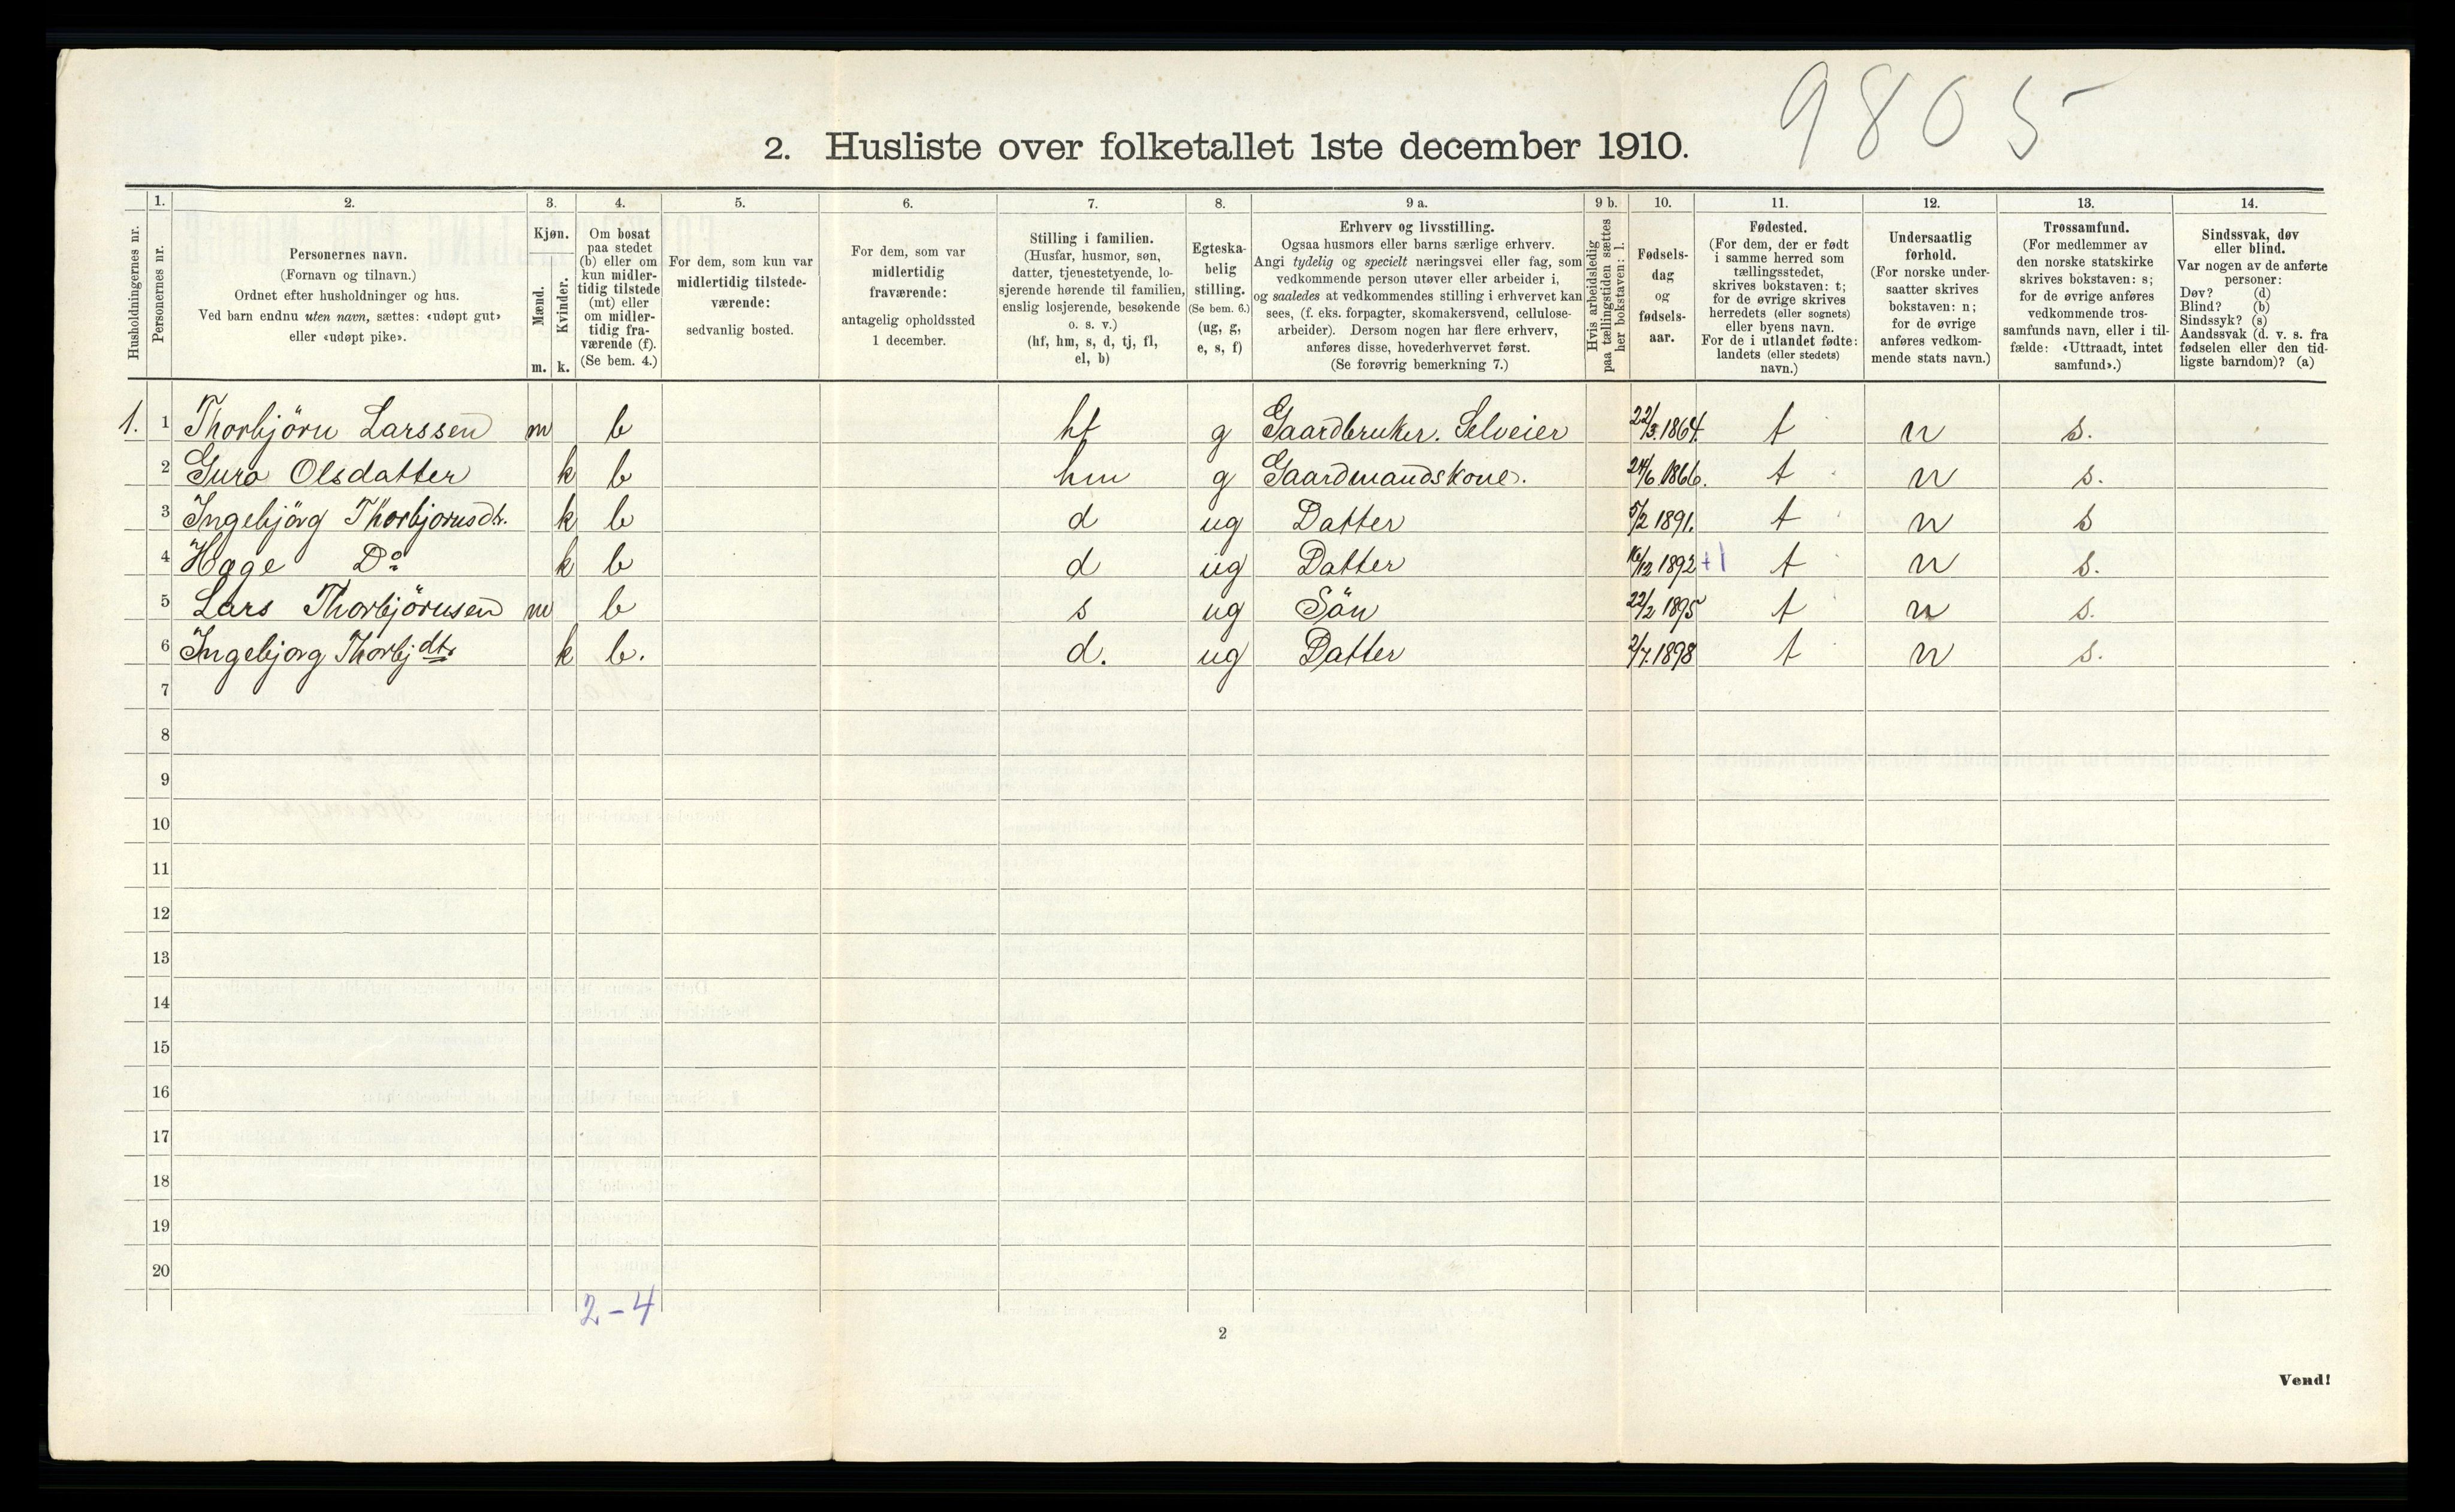 9805
2. Husliste over folketallet 1ste december 1910.
Husholdningernes nr.
1.
Personernes nr.
2.
Personernes navn.
(Fornavn og tilnavn.)
Ordnet efter husholdninger og hus.
Ved barn endnu uten navn, sættes: «udøpt gut»
eller «udøpt pike».
3.
Kjøn.
Mænd.
Kvinder.
m. k.
4.
Om bosat
paa stedet
(b) eller om
kun midler-
tidig tilstede
(mt) eller
om midler-
tidig fra-
værende (f).
(Se bem. 4.)
5.
For dem, som kun var
midlertidig tilstede-
værende:
sedvanlig bosted.
6.
For dem, som var
midlertidig
fraværende:
antagelig opholdssted
1 december.
7.
Stilling i familien.
(Husfar, husmor, søn,
datter, tjenestetyende, lo-
sjerende hørende til familien,
enslig losjerende, besøkende
o. s. v.)
(hf, hm, s, d, tj, fl,
el, b)
8.
Egteska-
belig
stilling.
(Se bem. 6.)
(ug, g,
e, s, f)
9 a.
Erhverv og livsstilling.
Ogsaa husmors eller barns særlige erhverv.
Angi tydelig og specielt næringsvei eller fag, som
vedkommende person utøver eller arbeider i,
og saaledes at vedkommendes stilling i erhvervet kan
sees, (f. eks. forpagter, skomakersvend, cellulose-
arbeider). Dersom nogen har flere erhverv,
anføres disse, hovederhvervet først.
(Se forøvrig bemerkning 7.)
9 b.
Hvis arbeidsledig
paa tællingstiden sættes
her bokstaven: l.
10.
Fødsels-
dag
og
fødsels-
aar.
11.
Fødested.
(For dem, der er født
i samme herred som
tællingsstedet,
skrives bokstaven: t;
for de øvrige skrives
herredets (eller sognets)
eller byens navn.
For de i utlandet fødte:
landets (eller stedets)
navn.)
12.
Undersaatlig
forhold.
(For norske under-
saatter skrives
bokstaven: n;
for de øvrige
anføres vedkom-
mende stats navn.)
13.
Trossamfund.
(For medlemmer av
den norske statskirke
skrives bokstaven: s;
for de øvrige anføres
vedkommende tros-
samfunds navn, eller i til-
fælde: «Uttraadt, intet
samfund».)
14.
Sindssvak, døv
eller blind.
Var nogen av de anførte
personer:
Døv? (d)
Blind? (b)
Sindssyk? (s)
Aandssvak (d. v. s. fra
fødselen eller den tid-
ligste barndom)? (a)
1. 1 Thorbjörn Larssen m b hf g Gaardbruker. Selveier 22/3.1864. t n s.
2 Guro Olsdatter k b hm g Gaardmandskone. 24/6.1866. t n s.
3 Ingebjörg Thorbjornsdtr. k b d ug Datter 5/2 1891. t n s
4 Hæge Do k b d ug Datter 16/12 1892 +1 t n s.
5 Lars Thorbjörnsen m b s ug Sön 22/2 1895 t n s.
6 Ingebjorg Thorbjdtr k b. d. ug Datter 2/7.1898 t n s.
7
8
9
10
11
12
13
14
15
16
17
18
19
20
2-4
2
Vend!